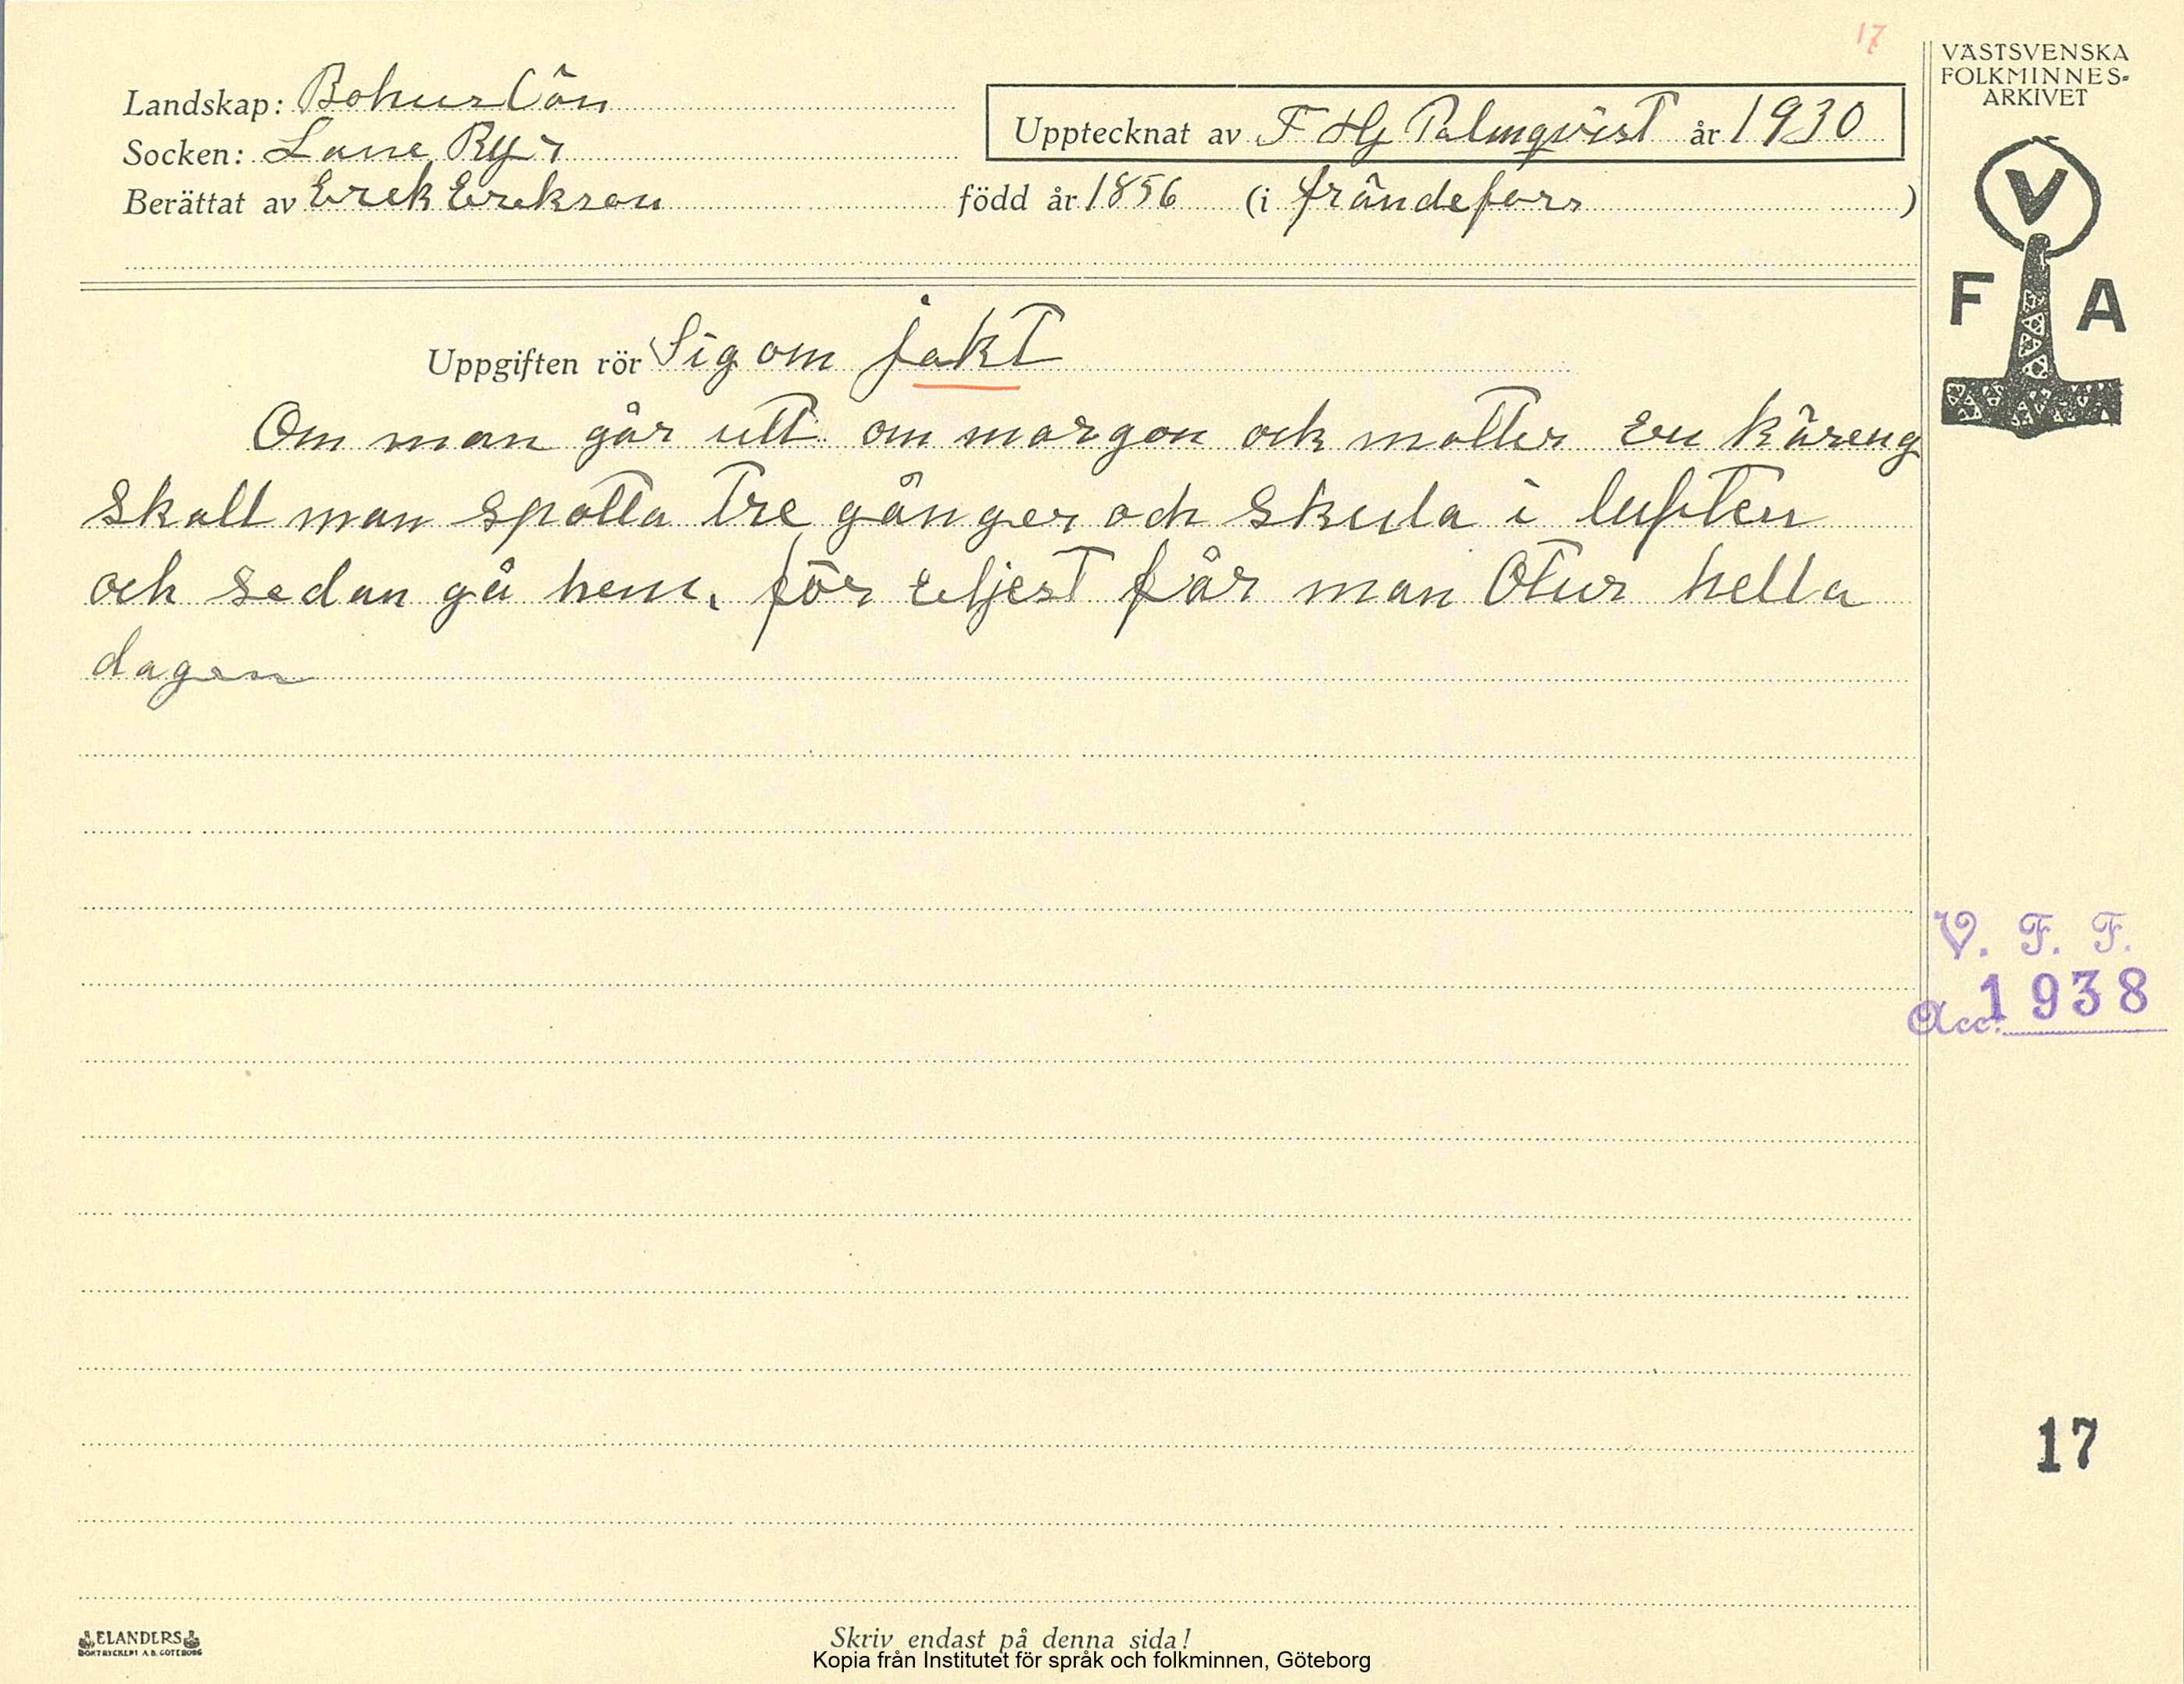 17
VÄSTSVENSKA
FOLKMINNES-
ARKIVET
Landskap: Bohus Län
Upptecknat av F Hj Palmqvist år 1930
Socken: Lane Ryr
Berättat av Erek Erekson född år 1856 (i frändefors)
V
F A
Uppgiften rör Sig om jakt
Om man går utt om morgon ock motter en käreng
skall man spotta tre gånger och skuta i luften
och sedan gå hem, för eljest får man Otur hella
dagen
V. F. F.
Acc. 1938
17
ELANDERS
BOKTRYCKERI A.B. GÖTEBORG
Skriv endast på denna sida!
Kopia från Institutet för språk och folkminnen, Göteborg